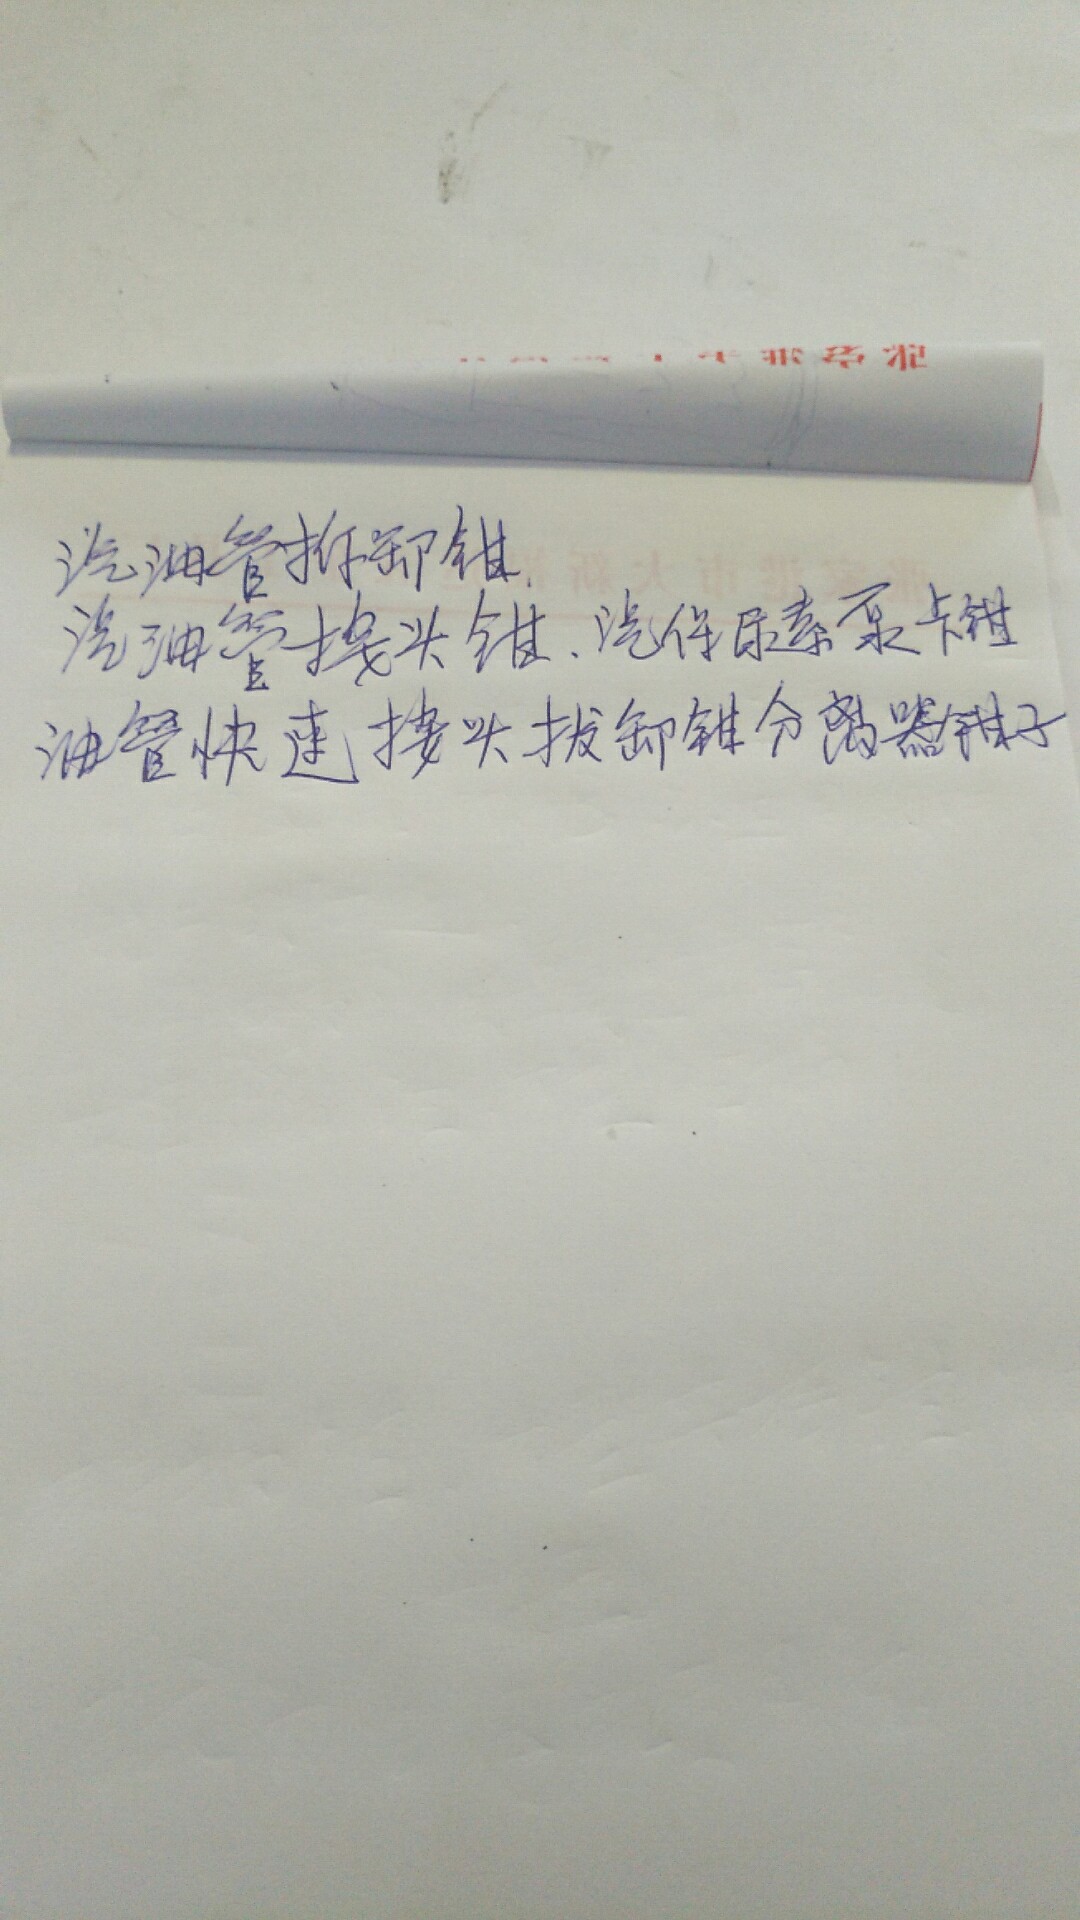 汽油管拆卸钳.
汽油管接头钳、汽保尿素泵卡钳
油管快速接头拔卸钳分离器钳子